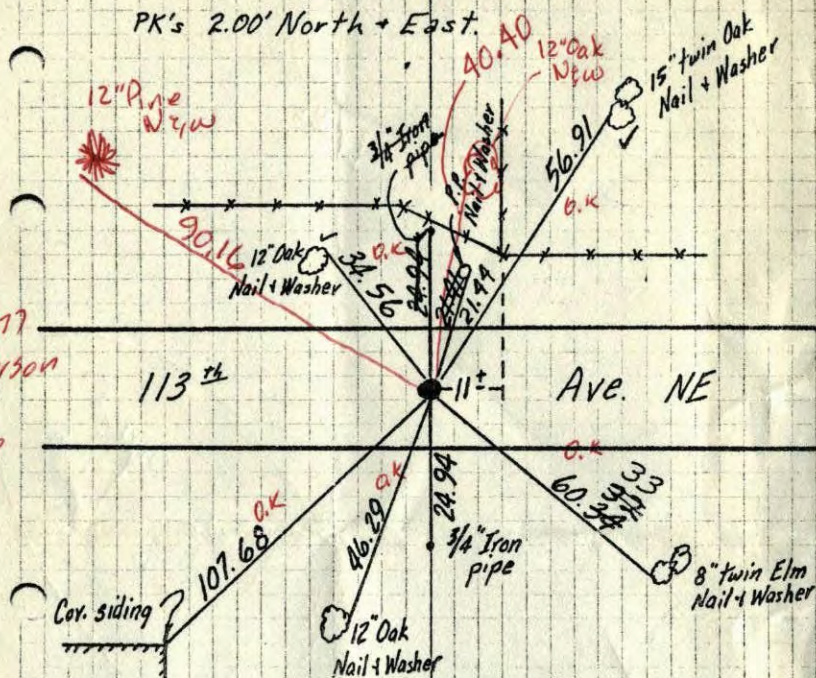 PK's 2.00' North + East.
40.40
12" Oak
New
15" twin Oak
Nail + Washer
12" Pine
New
3/4" Iron
pipe
P.P.
Nail & Washer
56.91
o.k
90.16
12" Oak
Nail & Washer
34.56
o.k
24.94
21.44
77
rson
113th
11±
Ave. NE
o.k
107.68
o.k
46.29
o.k
24.94
60.34
33
3/4" Iron
pipe
8" twin Elm
Nail & Washer
Cor. siding
12" Oak
Nail & Washer